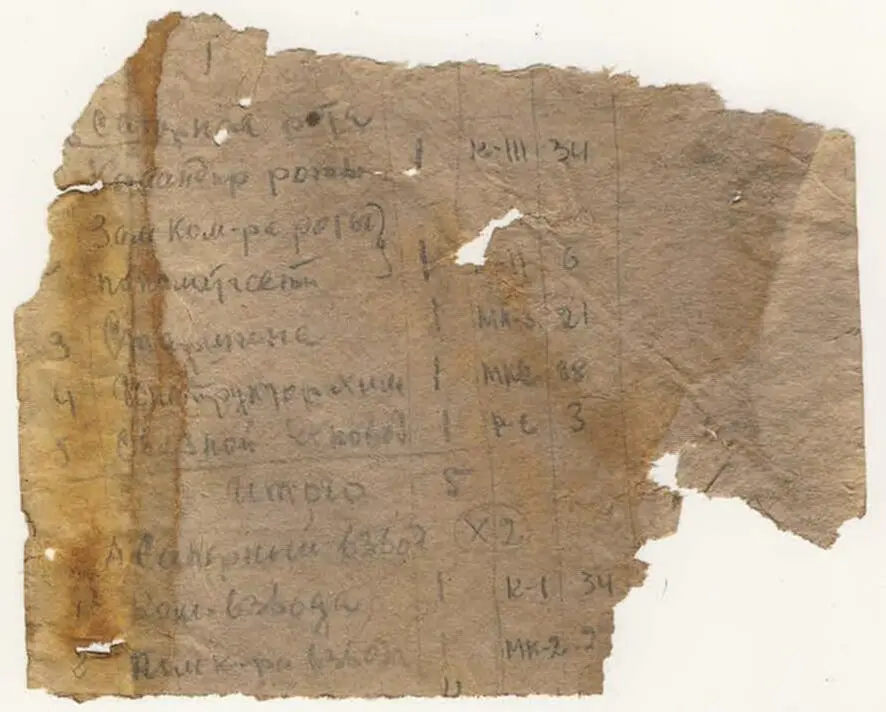 1
Саперная рота
Командир роты 1 К-III 34
Зам ком-ра роты
по политчасти 1 6
3 Старшина 1 МК-3 21
4 Инструктор хим 1 МК2 38
5 Связной 1 РС 3
Итого 5
А Саперный взвод X2
1 Ком. взвода 1 К-1 34
2 Пом к-ра взвода 1 МК-2